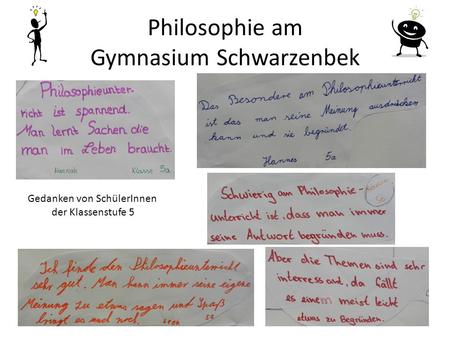 Philosophie am
Gymnasium Schwarzenbek
Philosophieunter-
richt ist spannend.
Man lernt Sachen die
man im Leben braucht.
Hannah Klasse 5a
Das Besondere am Philosophieunterricht
ist das man seine Meinung ausdrücken
kann und sie begründet.
Hannes 5a
Gedanken von SchülerInnen
der Klassenstufe 5
Schwierig am Philosophie-
unterricht ist, dass man immer
seine Antwort begründen muss.
5a
Ich finde den Philosophieunterricht
sehr gut. Man kann immer seine eigene
Meinung zu etwas sagen und Spaß
bringt es auch noch.
5a
Aber die Themen sind sehr
interessant, da fällt
es einem meist leicht
etwas zu Begründen.